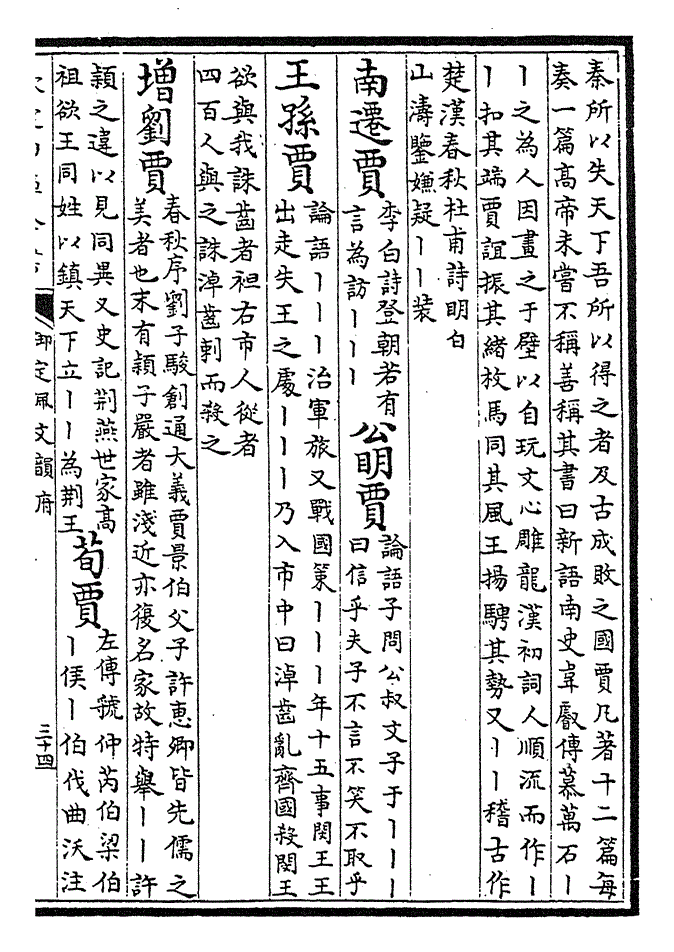 秦所以失天下吾所以得之者及古成敗之國賈凡著十二篇每
奏一篇髙帝未嘗不稱善稱其書曰新語南史韋叡傳慕萬石丨
丨之為人因畫之于壁以自玩文心雕龍漢初詞人順流而作丨
丨扣其端賈誼振其緒枚馬同其風王揚騁其勢又丨丨稽古作
楚漢春秋杜甫詩明白
山濤鑒嫌疑丨丨装
南遷賈
李白詩登朝若有
言為訪丨丨丨
公明賈
論語子問公叔文子于丨丨丨
曰信乎夫子不言不笑不取乎
王孫賈
論語丨丨丨治軍旅又戰國策丨丨丨年十五事閔王王
出走失王之處丨丨丨乃入市中曰淖齒亂齊國殺閔王
欲與我誅齒者袒右市人從者
四百人與之誅淖齒刺而殺之
增劉賈
春秋序劉子駿創通大義賈景伯父子許惠卿皆先儒之
美者也末有潁子嚴者雖淺近亦復名家故特舉丨丨許
潁之違以見同異又史記荆燕世家髙
祖欲王同姓以鎮天下立丨丨為荆王
荀賈
左傳虢仲芮伯梁伯
丨侯丨伯伐曲沃注
御定佩文韻府
三十四